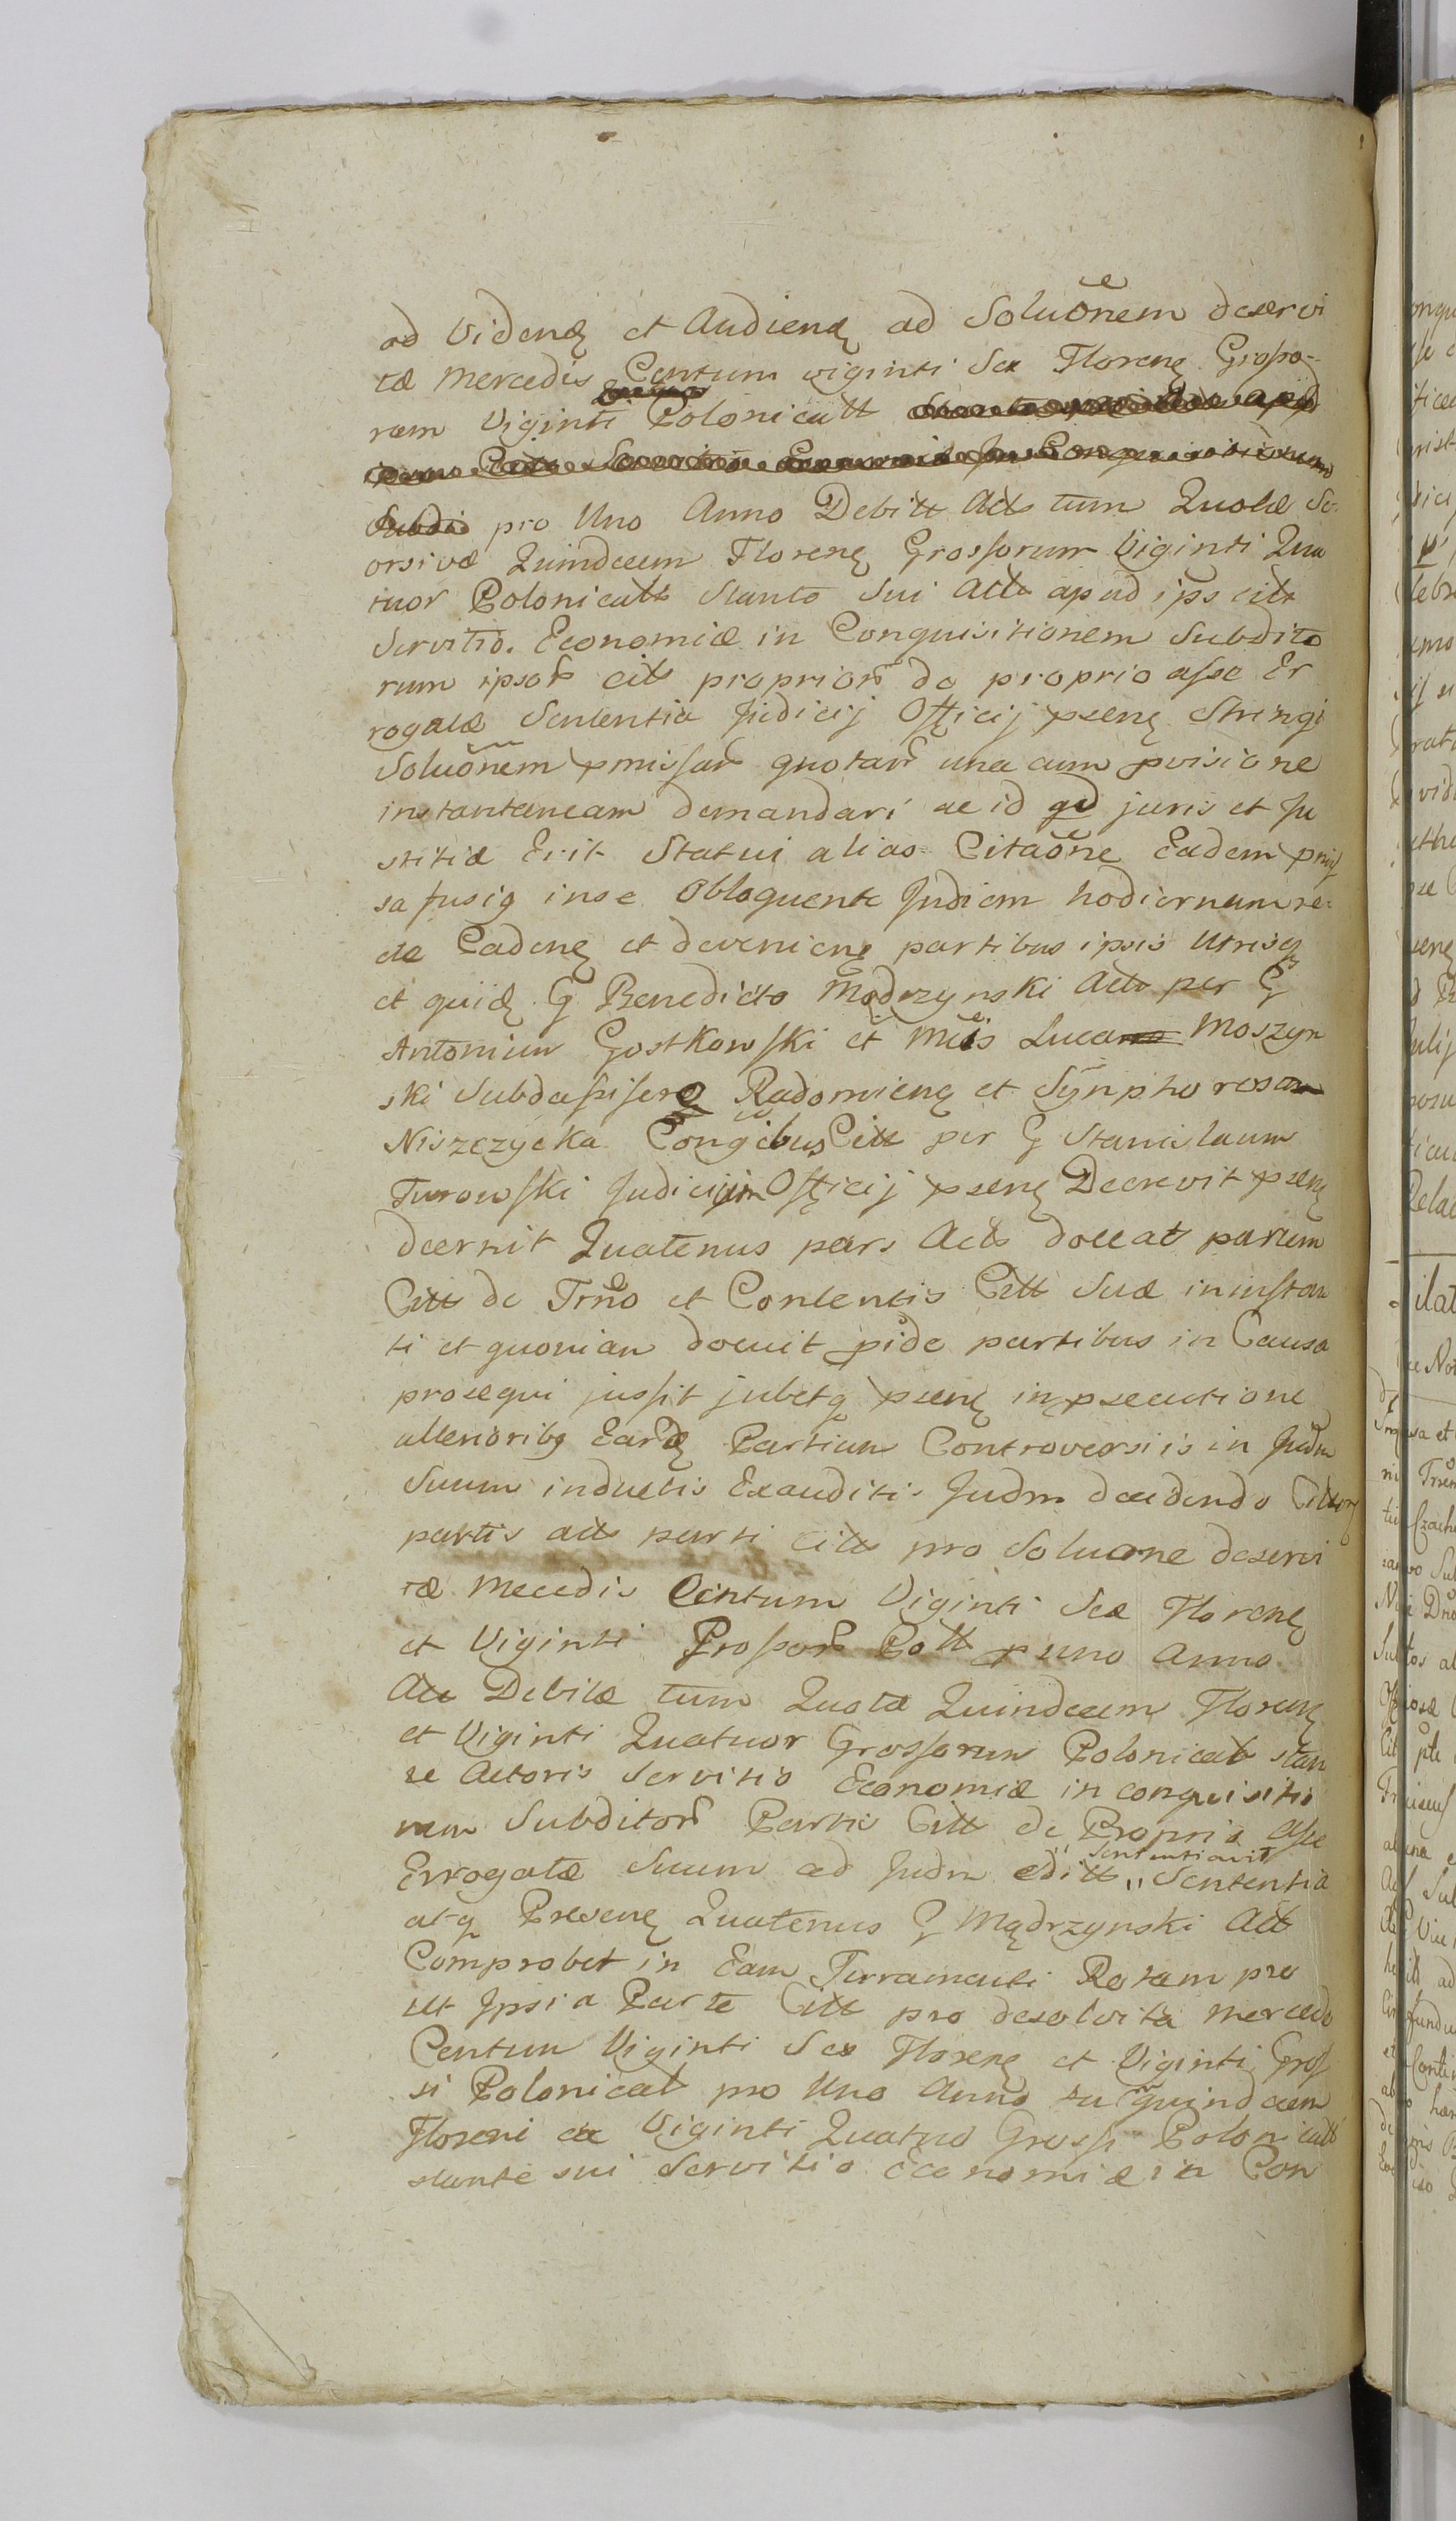 ad Videnę et Audienę ad Soluõnem deservi
tæ Mercedis Centum viginti Sex Florenę Grosso-
rum Viginti Polonicatt
Subdi pro Uno Anno Debitæ Act tum Quotæ Se-
orsivæ Quindecem Florenę Grossorum Viginti Qua
tuor Polonicatt Stante Sui Act apud ips citt
Servitio. Economiæ in Conquisitionem Subdito
rum ipsor citt proprior de proprio asse Er
rogatæ Sententia Judicij Officij psenę Stringi
Soluõnem pmissar quotar una cum pvisione
instantaneam demandari ac id qd juris et Ju
stitiæ Erit Statui alias Citaõne Eadem pmis
sa fusig in se Obloquente Judiem hodiernum re-
cte Cadenę et devenienę partibus ipsis Utrisq
et quidę G Benedicto Mądrzynski Act per G
Antonium Gostkowski et Mcis Luca Moszyn
ski Subdapifero Radomienę et Synphorosa
Niszczycka Congibus Citt per G Stanislaum
Turowski Judicijm Officij psenę Decrevit psenę
dcernit Quatenus pars Act doceat partem
Citt de Trno et Contentis Citt Suæ in instan
ti et quoniam docuit pide partibus in Causa
prosequi jussit jubetq psenę in psecutione
ulterioribq Earđę Partium Controversiis in Judm
Suum inductis Exauditis Judm decidendo
partis act parti citt pro Soluõne deservi
tæ Mecedis Centum Viginti Sex Florenę
et Viginti Grossor Pol p uno Anno
Act Debitæ tum Quotæ Quindecem Florenę
et Viginti Quatuor Grossorum Polonicat stan
te Actoris Servitio Economiæ in conquisitio
nem Subditor Partis Citt de Proprio Asse
Errogatæ Suum ad Judm editt " Sententiavit Sententia
atq Presenę Quatenus G Mądrzynski Act
Comprobet in Eam Jurramenti Rotam pro
ut Ipsi a Parte Citt pro desolvita mercede
Centum Viginti Sex Florenę et Viginti Gros
si Polonicat pro Uno Anno tu quindcem
Floreni ex Viginti Quatuo Grossi Polonicatt
stante sui Servitio Economiæ in Con